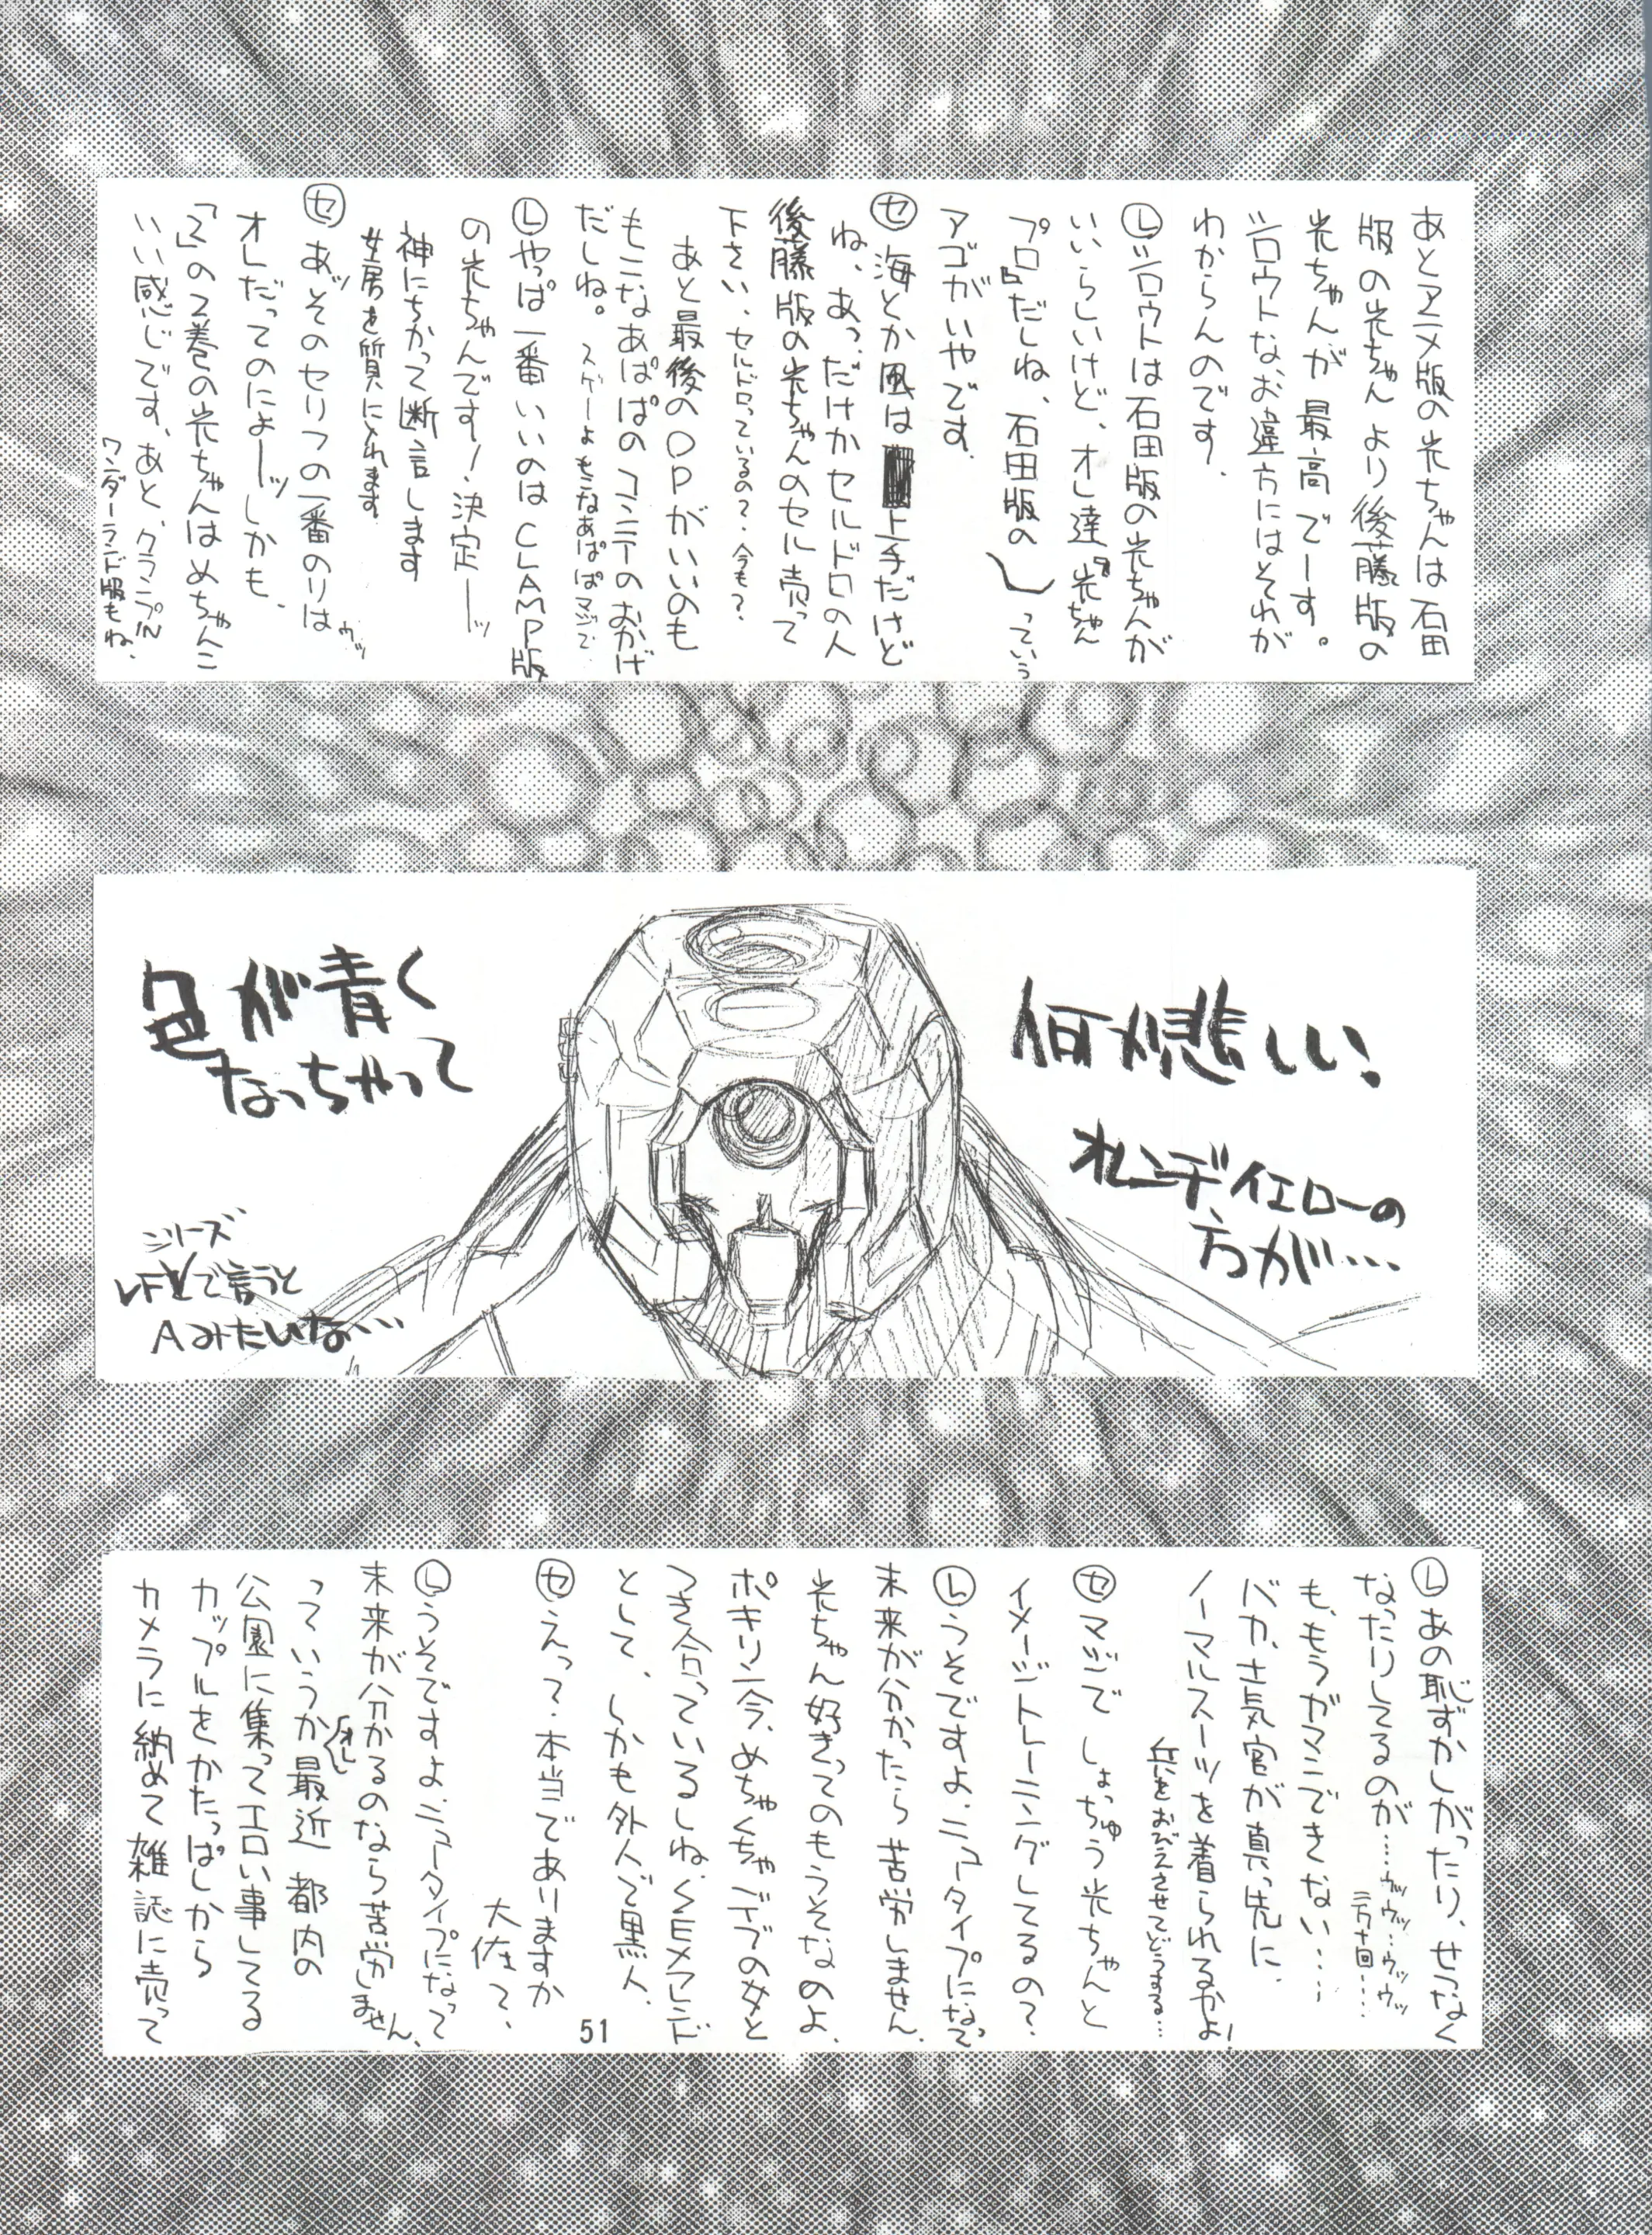 あとアニメ版の光ちゃんは石田
版の光ちゃんより後藤版の
光ちゃんが最高でーす。
シロウトなお違方にはそれが
わからんのです。
Ⓛシロウトは石田版の光ちゃんが
いいらしいけど、オレ達"光ちゃん
プロ"だしね、石田版の
っていう
アゴがいやです。
㋝海とか風は上手だけど
ね、あっ、だけかセルドロの人
後藤版の光ちゃんのセル売って
下さい、セルドロっているの?今も?
あと最後のOPがいいのも
もこなあぱぱのコンテのおかげ
だしね。スゲーよもこなあぱぱマジで
Ⓛやっぱ一番いいのはCLAMP版
の光ちゃんです!決定ーッ
神にちかって断言します
女房を質に入れます
㋝あッそのセリフの一番のりは
ウッ
オレだってのによーッしかも、
「2」の2巻の光ちゃんはめちゃんこ
いい感じです、あと、クランプIN
ワンダーランド版もね、
何か悲しい!
オレンヂイエローの
方が…
色が青く
なっちゃって
シリーズ
VFで言うと
Aみたいな…
Ⓛあの恥ずかしがったり、せつなく
なったりしてるのが…ウッウッ…ウッウッ
三万十回…
も、もうガマンできない…
バカ、士気官が真っ先に
ノーマルスーツを着られるかよ!
兵をおびえさせてどうする…
㋝マジでしょっちゅう光ちゃんと
イメージトレーニングしてるの?
Ⓛうそですよ、ニュータイプになって
未来が分かったら苦労しません、
光ちゃん好きってのもうそなのよ、
ポキリン今、めちゃくちゃデブの女と
つき合っているしね、SEXフレンド
として、しかも外人で黒人、
㋝えっ?本当でありますか
大佐?、
Ⓛうそですよ、ニュータイプになって
未来が分かるのなら苦労しません、
っていうか最近都内の
オレ
公園に集ってエロい事してる
カップルをかたっぱしから
カメラに納めて雑誌に売って
51